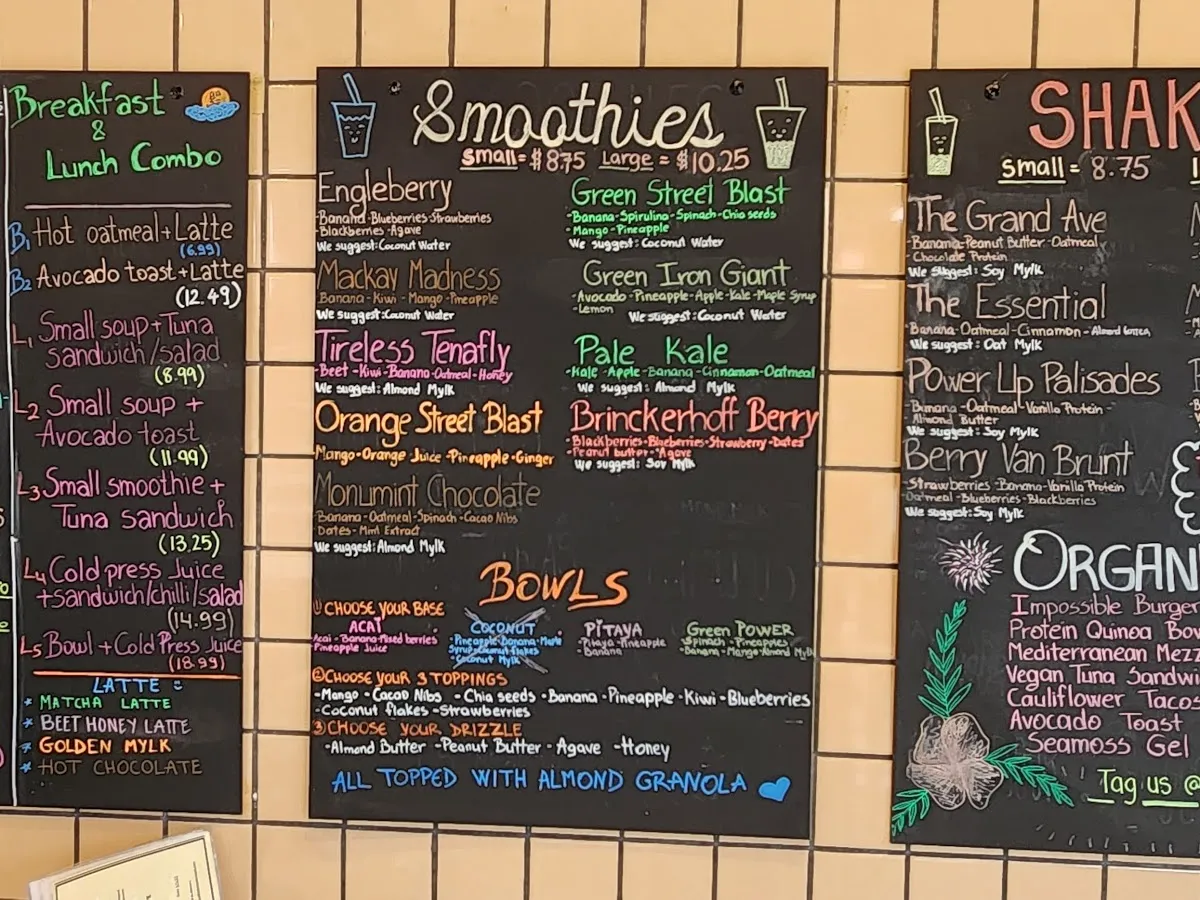 Breakfast
&
Lunch Combo
B1 Hot oatmeal + Latte
(6.99)
B2 Avocado toast + Latte
(12.49)
L1 Small soup + Tuna
sandwich/salad
(8.99)
L2 Small soup +
Avocado toast
(11.99)
L3 Small smoothie +
Tuna sandwich
(13.25)
L4 Cold press Juice
+sandwich/chilli/salad
(14.99)
L5 Bowl + Cold Press Juice
(18.99)
LATTE
* MATCHA LATTE
* BEET HONEY LATTE
* GOLDEN MYLK
* HOT CHOCOLATE
Smoothies
Small = $8.75 Large = $10.25
Engleberry
-Banana-Blueberries-Strawberries
-Blackberries-Agave
We suggest: Coconut Water
Mackay Madness
Banana-Kiwi-Mango-Pineapple
We suggest: Coconut Water
Tireless Tenafly
-Beet-Kiwi-Banana-Oatmeal-Honey
We suggest: Almond Mylk
Orange Street Blast
Mango-Orange Juice-Pineapple-Ginger
Monumint Chocolate
Banana-Oatmeal-Spinach-Cacao Nibs
Dates-Mint Extract
We suggest: Almond Mylk
Green Street Blast
-Banana-Spirulina-Spinach-Chia seeds
-Mango-Pineapple
We suggest: Coconut Water
Green Iron Giant
-Avocado-Pineapple-Apple-Kale-Maple Syrup
-Lemon We suggest: Coconut Water
Pale Kale
-Kale-Apple-Banana-Cinnamon-Oatmeal
We suggest: Almond Mylk
Brinckerhoff Berry
-Blackberries-Blueberries-Strawberry-Dates
-Peanut butter-Agave
We suggest: Soy Mylk
BOWLS
① CHOOSE YOUR BASE
ACAI
Acai-Banana-Mixed berries
Pineapple Juice
COCONUT
-Pineapple-Banana-Maple
Syrup-Coconut flakes
-Coconut Mylk
PITAYA
-Pitaya-Pineapple
-Banana
Green POWER
-Spinach-Pineapples
-Banana-Mango-Almond Mylk
② CHOOSE YOUR 3 TOPPINGS
-Mango -Cacao Nibs -Chia seeds -Banana -Pineapple -Kiwi -Blueberries
-Coconut flakes -Strawberries
③ CHOOSE YOUR DRIZZLE
-Almond Butter -Peanut Butter -Agave -Honey
ALL TOPPED WITH ALMOND GRANOLA
SHAK
small = 8.75
The Grand Ave
-Banana-Peanut Butter-Oatmeal
-Chocolate Protein
We suggest: Soy Mylk
The Essential
Banana-Oatmeal-Cinnamon-Almond butter
We suggest: Oat Mylk
Power Up Palisades
-Banana-Oatmeal-Vanilla Protein-
Almond Butter
We suggest: Soy Mylk
Berry Van Brunt
-Strawberries-Banana-Vanilla Protein
Oatmeal-Blueberries-Blackberries
We suggest: Soy Mylk
ORGAN
Impossible Burger
Protein Quinoa Bow
Mediterranean Mezz
Vegan Tuna Sandwi
Cauliflower Tacos
Avocado Toast
Seamoss Gel
Tag us @